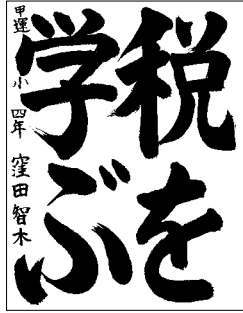 税を
学ぶ
甲運小 四年 窪田智木